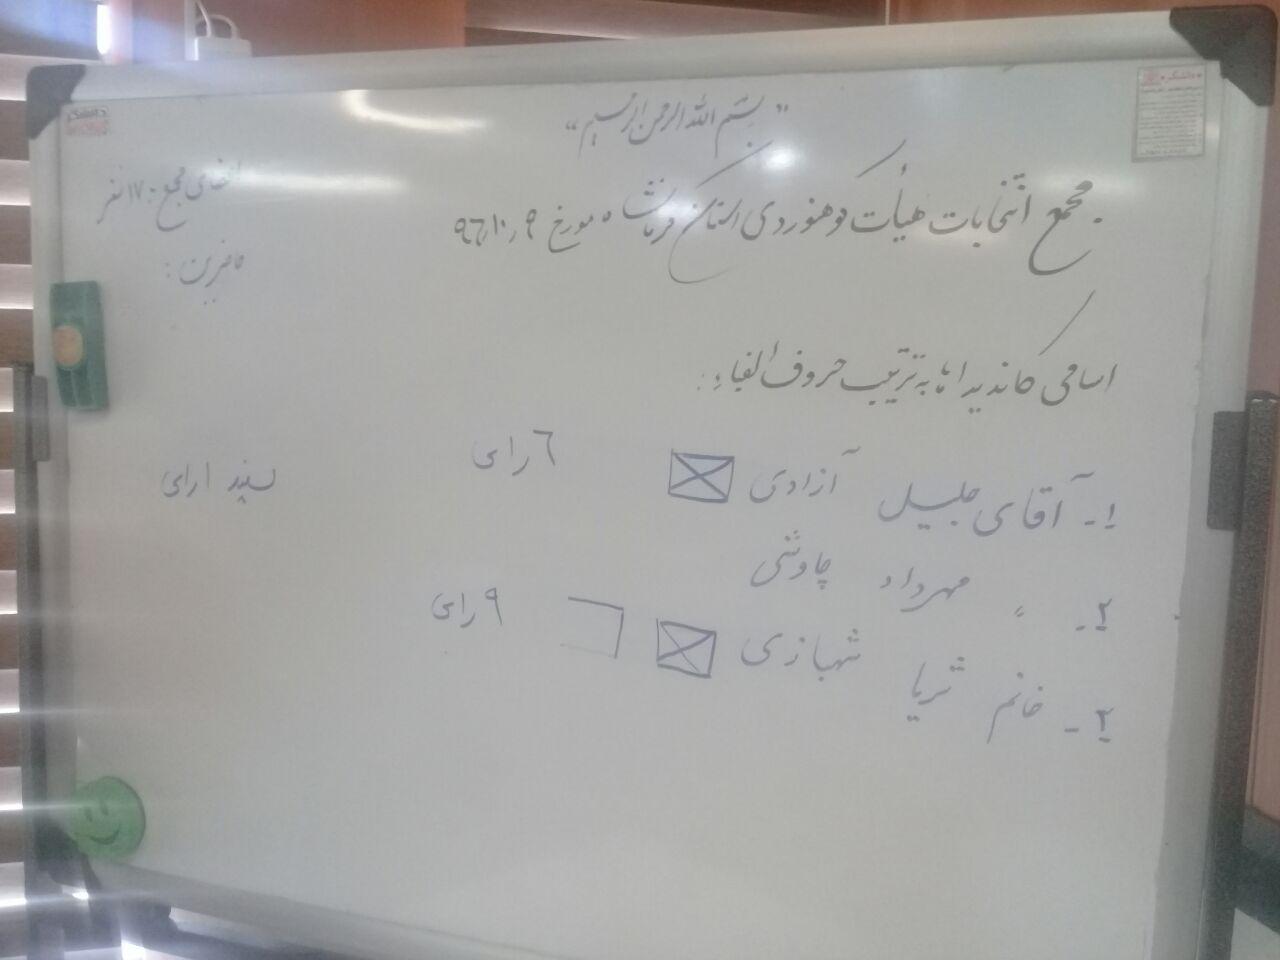 "بسم الله الرحمن الرحیم"
اعضای مجمع: ۱۷ نفر
مجمع انتخابات هیأت کوهنوردی استان کرمانشاه مورخ ۹۶٫۱۰٫۹
حاضرین:
اسامی کاندیداها به ترتیب حروف الفباء:
۱- آقای جلیل آزادی ۶ رای
سفید ۱ رای
۲- " مهرداد چاوشی
۳- خانم ثریا شهبازی ۹ رای
دانشگر